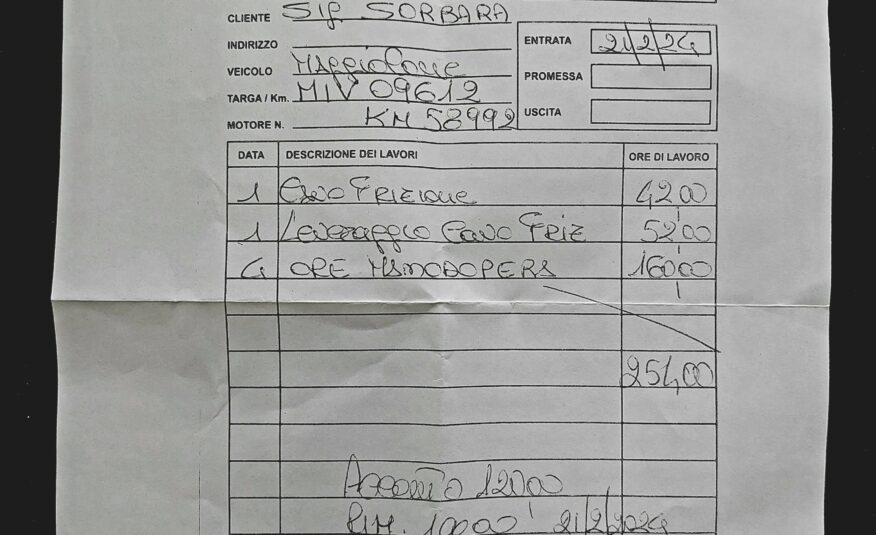 CLIENTE Sig SORBARA
INDIRIZZO
VEICOLO Maggiolone
TARGA / Km. MIV 09612
MOTORE N. KM 58992
ENTRATA 21/2/24
PROMESSA
USCITA
DATA DESCRIZIONE DEI LAVORI ORE DI LAVORO
1 Cavo Frizione 42,00
1 Leveraggio Cavo Friz 52,00
4 ORE MANODOPERA 160,00
254,00
Acconto 120,00
RIM. 100,00 21/2/2024